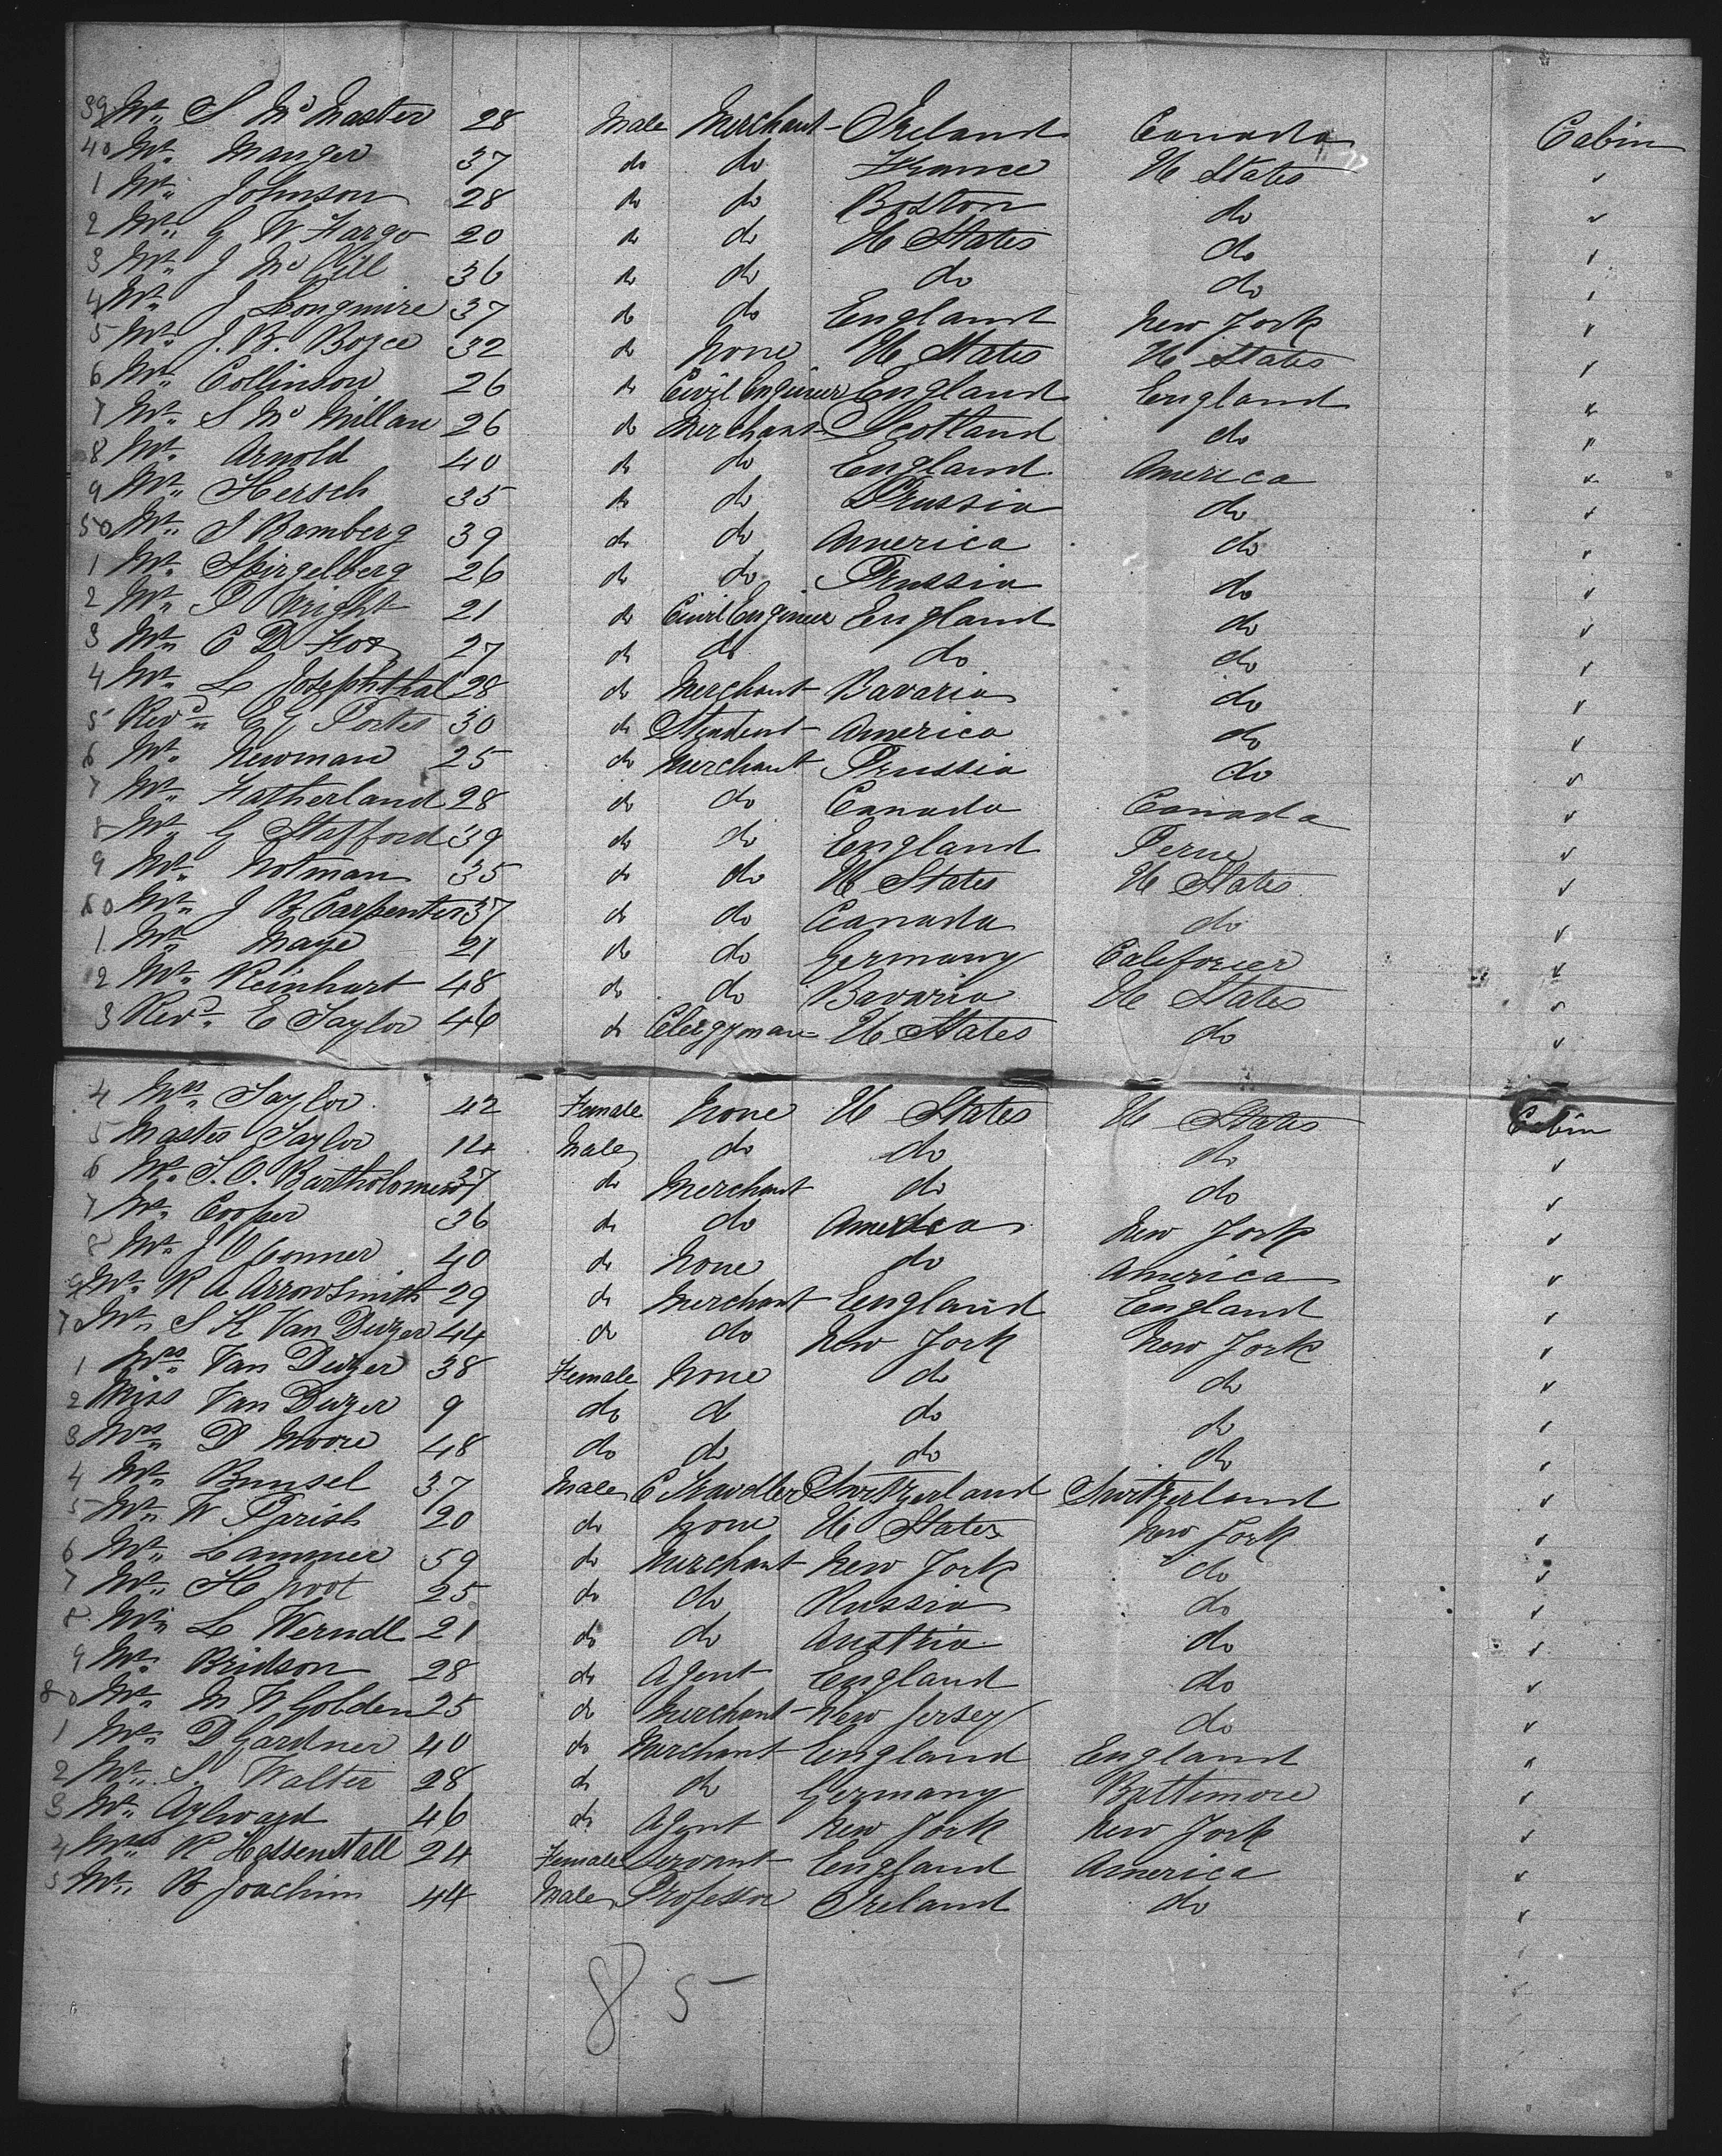 39 Mr. S McMaster 28 Male Merchant Ireland Canada Cabin
40 Mr. Manger 37 do do France U States
1 Mr. Johnson 28 do do Boston do
2 Mr. G W Fargo 20 do do U States do
3 Mr. J McGill 36 do do do do
4 Mr. J Longmire 37 do do England New York
5 Mr. J. B. Boyce 32 do None U States U States
6 Mr. Collinson 26 do Civil Engineer England England
7 Mr. S McMillan 26 do Merchant Scotland do
8 Mr. Arnold 40 do do England America
9 Mr. Hersch 35 do do Prussia do
50 Mr. S Bamberg 39 do do America do
1 Mr. Spirgelberg 26 do do Prussia do
2 Mr. P Wright 21 do Civil Engineer England do
3 Mr. C D Fox 27 do do do do
4 Mr. L Josephthal 28 do Merchant Bavaria do
5 Revd. E G Porter 30 do Student America do
6 Mr. Newman 25 do Merchant Prussia do
7 Mr. Fatherland 28 do do Canada Canada
8 Mr. G Stafford 39 do do England Peru
9 Mr. Notman 35 do do U States U States
60 Mr. J B Carpenter 37 do do Canada do
1 Mr. Maye 21 do do Germany Califorier
2 Mr. Reinhart 48 do do Bavaria U States
3 Revd. E Taylor 46 do Clergyman U States do
4 Mrs. Taylor 42 Female None U States U States Cabin
5 Master Taylor 14 Male do do do
6 Mr. T. O. Bartholomew 37 do Merchant do do
7 Mr. Cooper 36 do do America New York
8 Mr. J OConner 40 do None do America
9 Mr. R A Arrowsmith 29 do Merchant England England
70 Mr. S H Van Duzer 44 do do New York New York
1 Mrs. Van Duzer 38 Female None do do
2 Miss Van Duzer 9 do do do do
3 Mrs. D Moore 48 do do do do
4 Mr. Bunsel 37 Male C Travdler Swrtzerland Swrtzerland
5 Mr. W Parish 20 do None U States New York
6 Mr. Lammer 59 do Merchant New York do
7 Mr. H 25 do do Russia do
8 Mr. L Werndl 21 do do Austria do
9 Mr. Bridson 28 do Agent England do
80 Mr. M W Golden 25 do Merchant New Jersey do
1 Mr. D Gardner 40 do Merchant England England
2 Mr. S. Walter 28 do do Germany Baltimore
3 Mr. Aylward 46 do Agent New York New York
4 Mrs R Hassenstall 24 Female Servant England America
5 Mr. B Joachim 44 Male Professor Ireland do
85